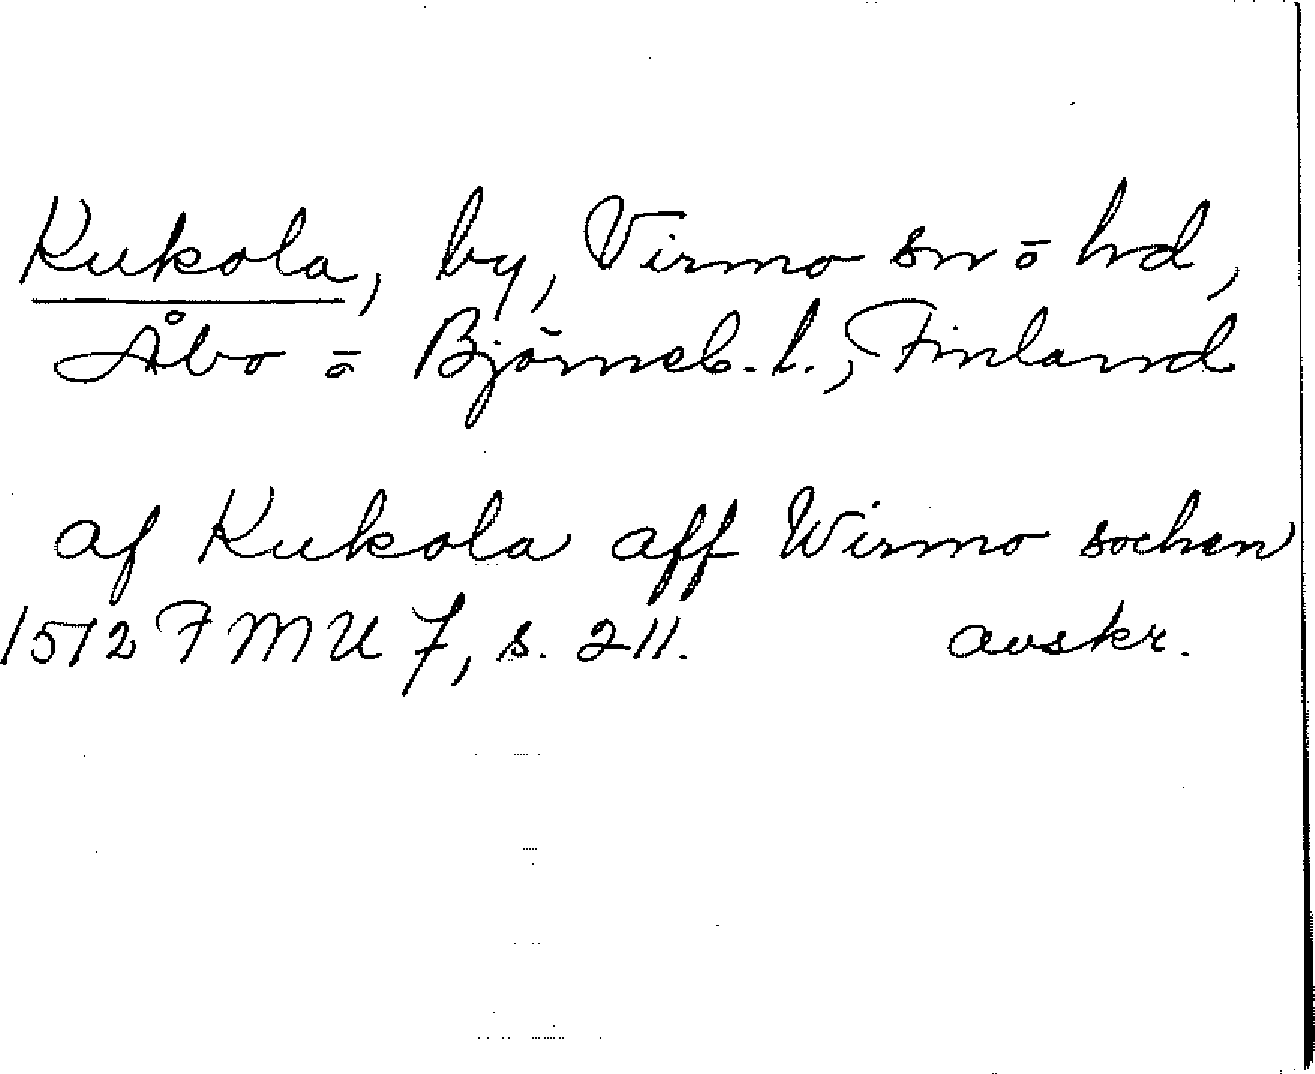 Kukola, by, Virmo sn ō hd,
Åbo ō Björneb. l., Finland
af Kukola aff Wirmo sochen
1512 FMU 7, s. 211. avskr.